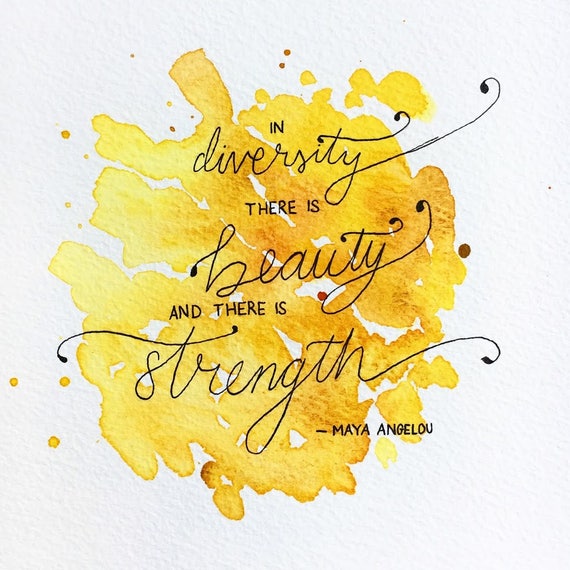 IN
diversity
THERE IS
beauty
AND THERE IS
strength
— MAYA ANGELOU